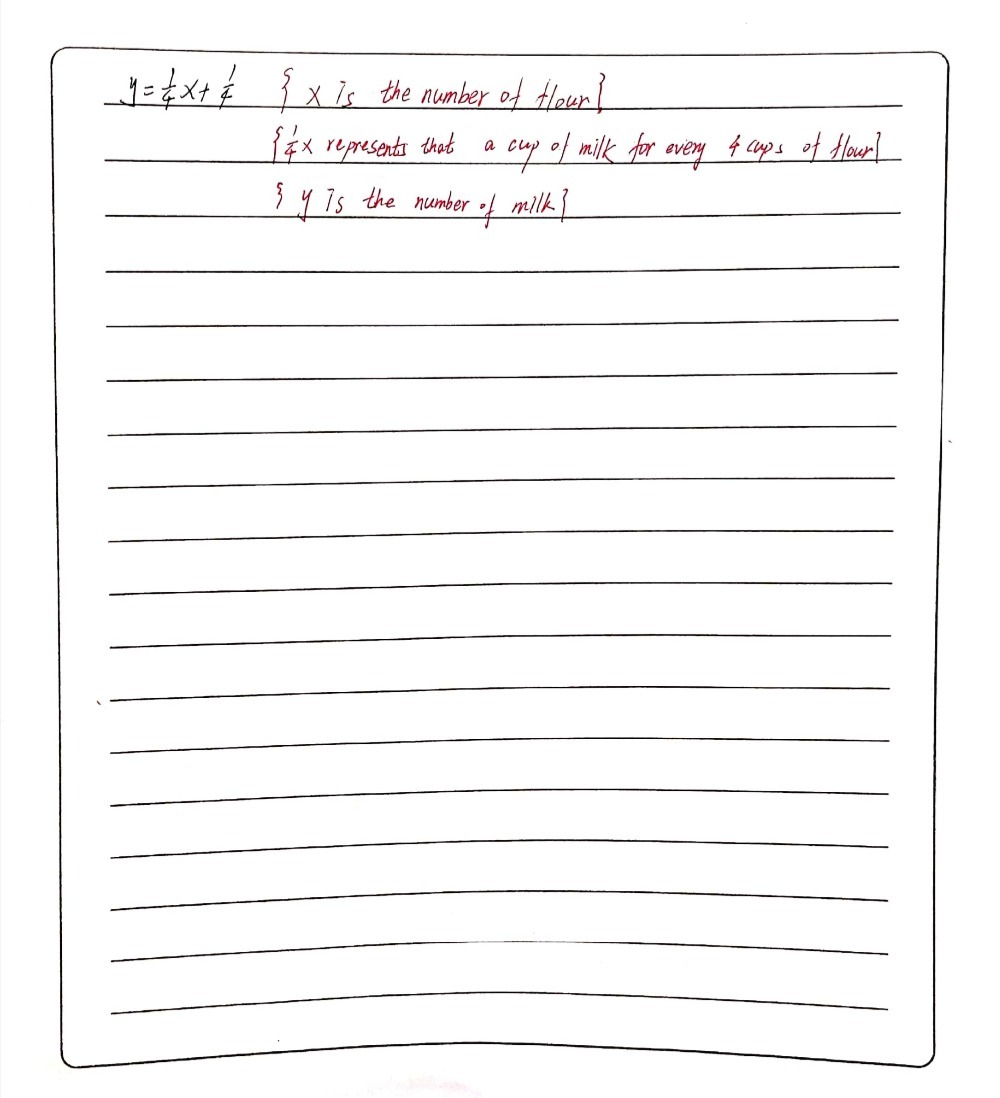 y = 1/4 x + 1/4 { x is the number of flour}
{ 1/4 x represents that a cup of milk for every 4 cups of flour}
{ y is the number of milk}